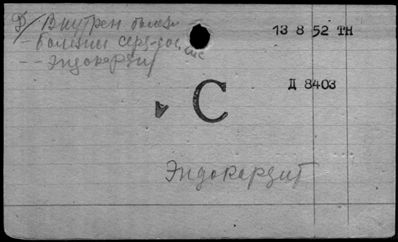 Внутрен болез
13 8 52 ТН
- болезни серд-сос. сис
-- Эндокардит
Д 8403
С
Эндокардит